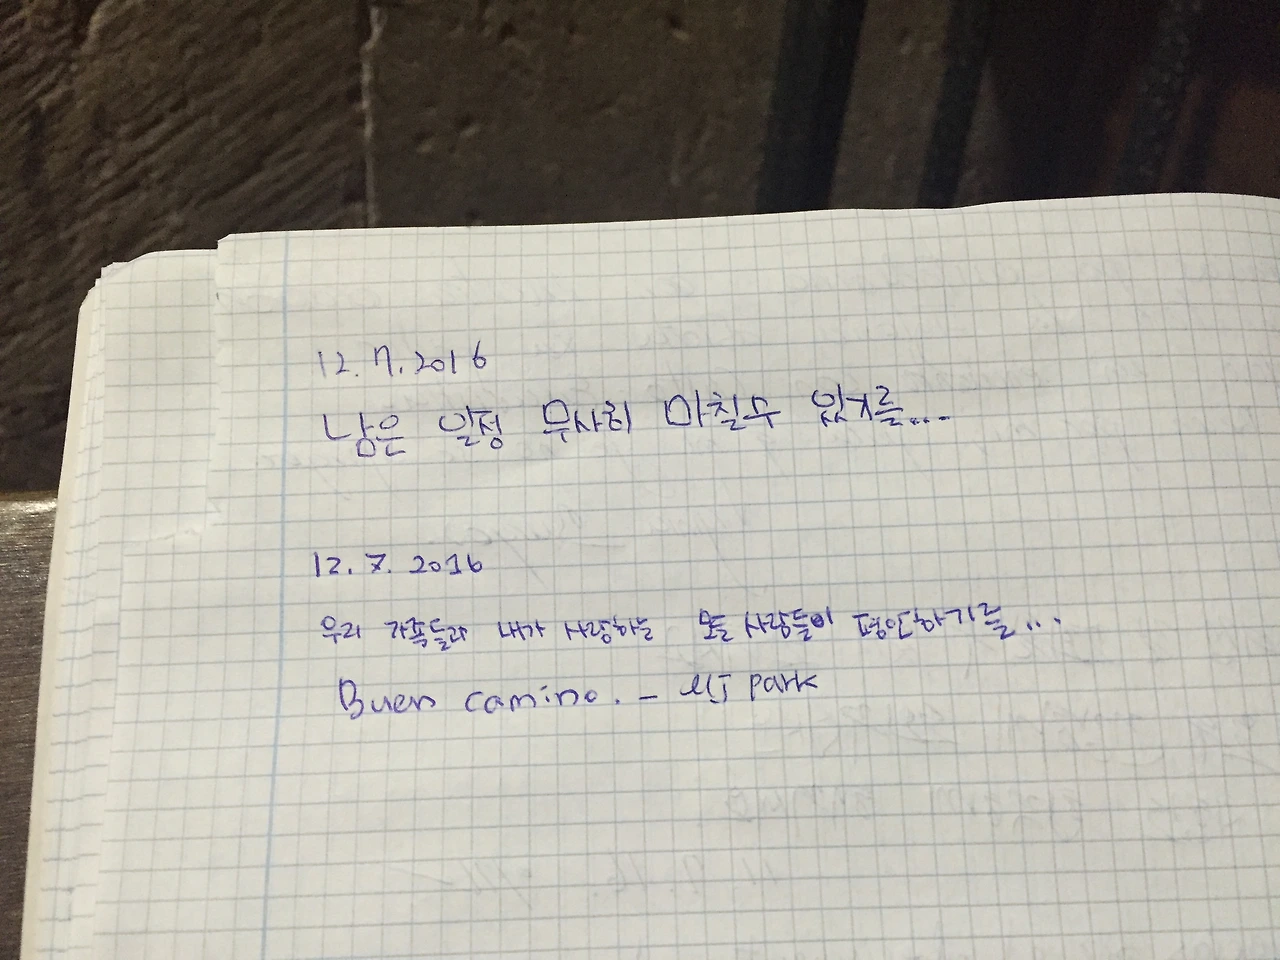 12.7.2016
남은 일정 무사히 마칠수 있기를...
12.7.2016
우리 가족들과 내가 사랑하는 모든 사람들이 평안하기를...
Buen camino. - MJ park